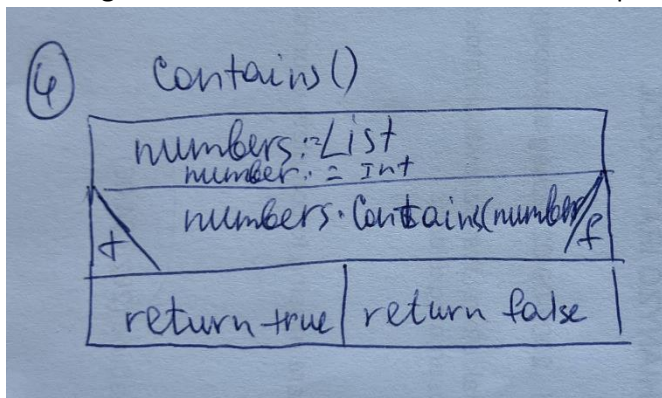 ④ Contains()
numbers:=List
number:= Int
numbers.Contains(number
t
f
return true
return false